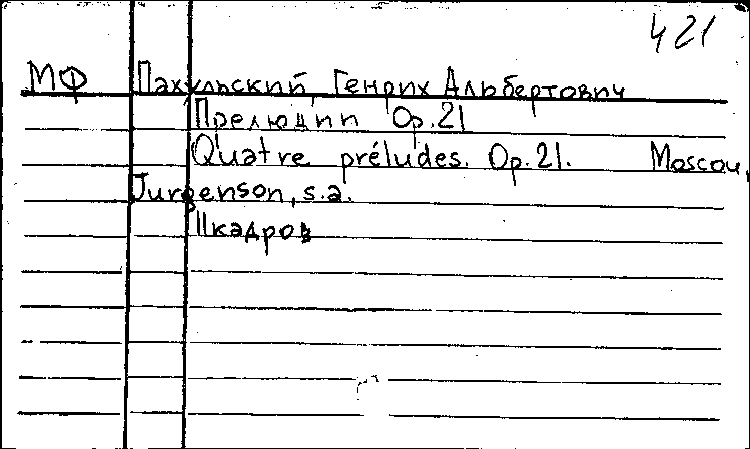 421
МФ Пахульский, Генрих Альбертович
Прелюдии Op.21
Quatre préludes. Op.21. Moscou,
Jurgenson, s.a.
11 кадров